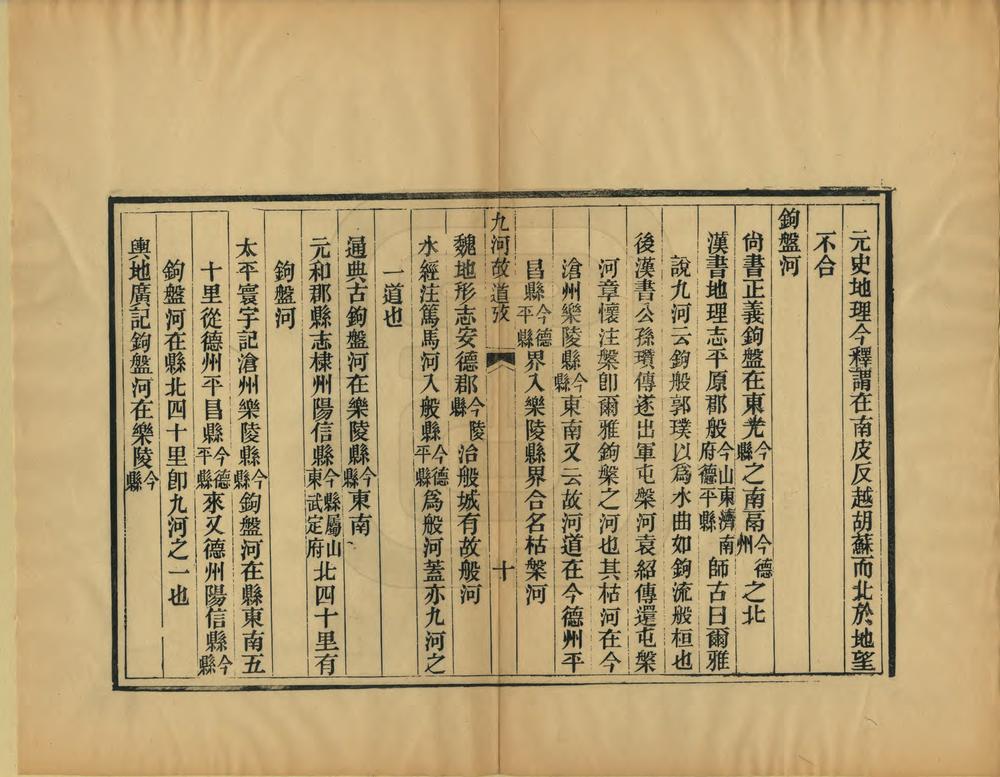 元史地理今釋謂在南皮反越胡蘇而北於地望
不合
鉤盤河
尙書正義鉤盤在東光今縣之南鬲今德州之北
漢書地理志平原郡般今山東濟南府德平縣師古曰爾雅
說九河云鉤般郭璞以爲水曲如鉤流般桓也
後漢書公孫瓚傳遂出軍屯槃河袁紹傳還屯槃
河章懷注槃卽爾雅鉤槃之河也其枯河在今
滄州樂陵縣今縣東南又云故河道在今德州平
昌縣今德平縣界入樂陵縣界合名枯槃河
九河故道攷 十
魏地形志安德郡今陵縣治般城有故般河
水經注篤馬河入般縣今德平縣爲般河蓋亦九河之
一道也
通典古鉤盤河在樂陵縣今縣東南
元和郡縣志棣州陽信縣今縣屬山東武定府北四十里有
鉤盤河
太平寰宇記滄州樂陵縣今縣鉤盤河在縣東南五
十里從德州平昌縣今德平縣來又德州陽信縣今縣
鉤盤河在縣北四十里卽九河之一也
輿地廣記鉤盤河在樂陵今縣